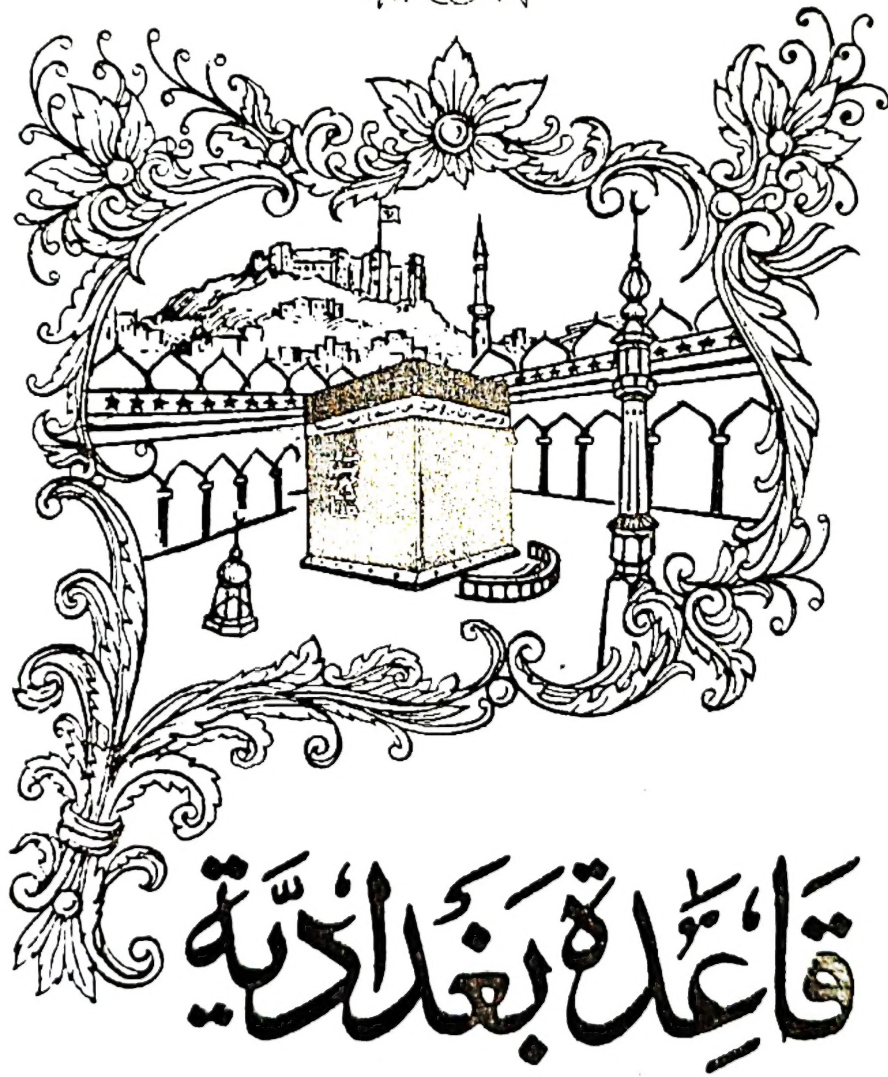 قَاعِدَة بَغْدَادِيَّة